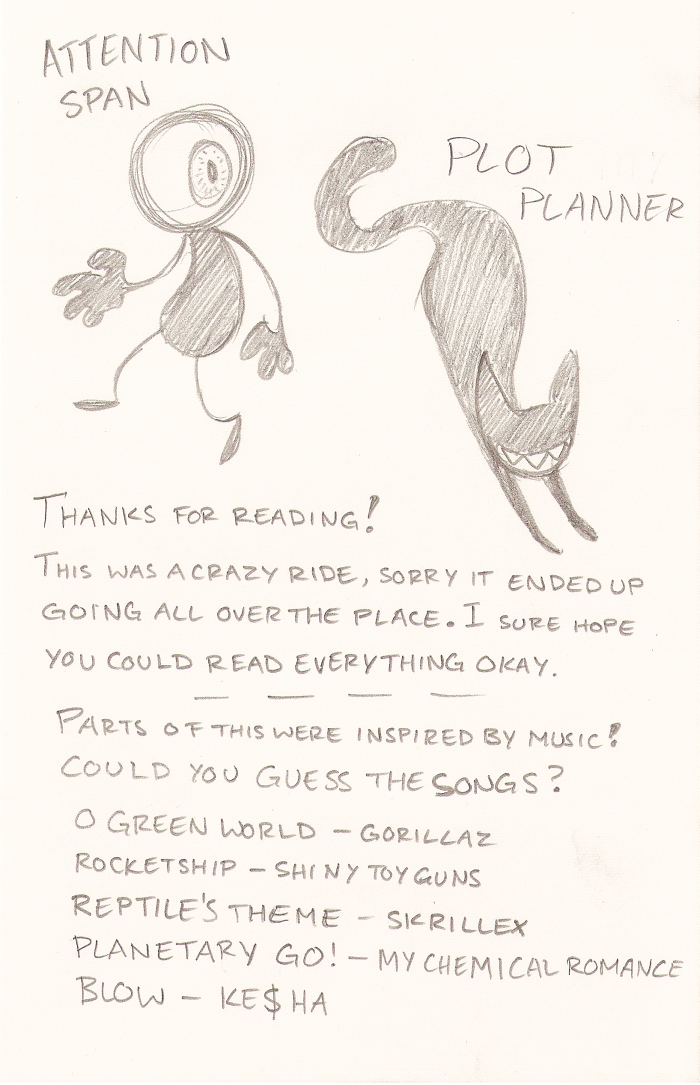 ATTENTION
SPAN
PLOT
PLANNER
THANKS FOR READING!
THIS WAS A CRAZY RIDE, SORRY IT ENDED UP
GOING ALL OVER THE PLACE. I SURE HOPE
YOU COULD READ EVERYTHING OKAY.
PARTS OF THIS WERE INSPIRED BY MUSIC!
COULD YOU GUESS THE SONGS?
O GREEN WORLD – GORILLAZ
ROCKETSHIP – SHINY TOY GUNS
REPTILE'S THEME – SKRILLEX
PLANETARY GO! – MY CHEMICAL ROMANCE
BLOW – KE$HA